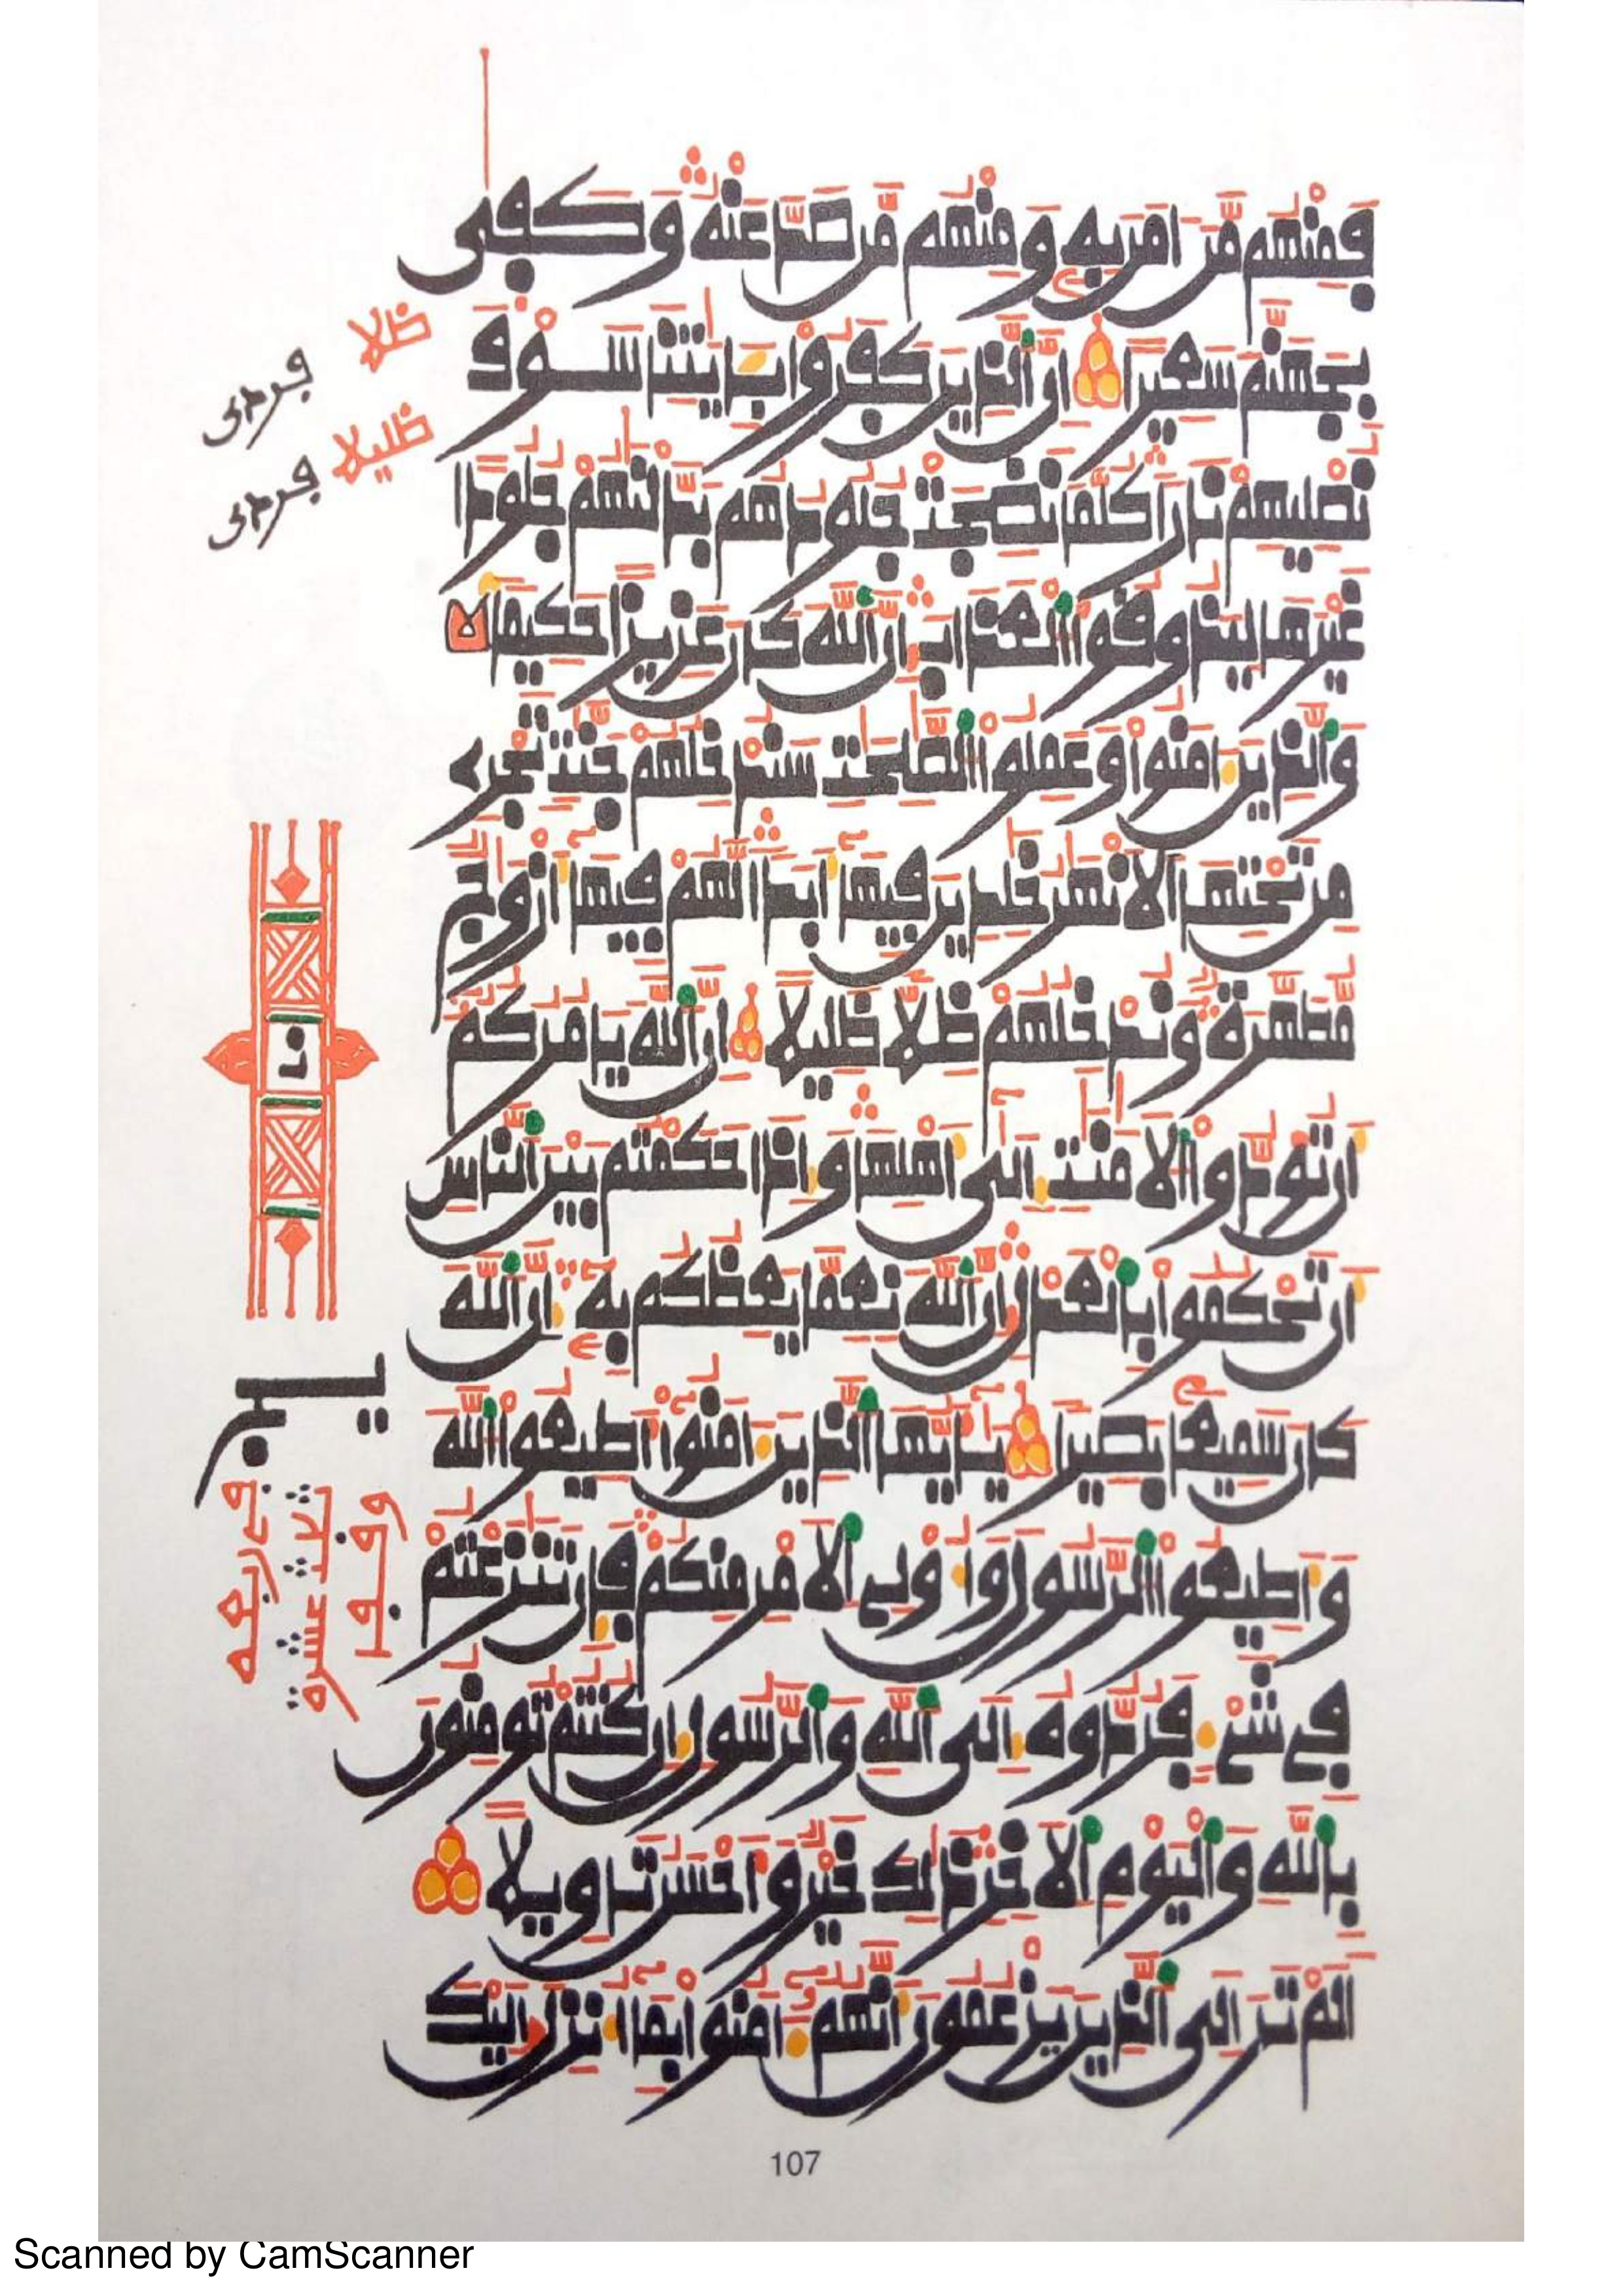 فمنهم من امن به ومنهم من صد عنه وكفى
بجهنم سعيرا ان الذين كفروا بايتنا سوف
نصليهم نارا كلما نضجت جلودهم بدلنهم جلودا
غيرها ليذوقوا العذاب ان الله كان عزيزا حكيما
والذين امنوا وعملوا الصلحت سندخلهم جنت تجرے
من تحتها الانهر خلدين فيها ابدا لهم فيها ازوج
مطهرة وندخلهم ظلا ظليلا ان الله يامركم
ان تودوا الامنت الى اهلها واذا حكمتم بين الناس
ان تحكموا بالعدل ان الله نعما يعظكم به ان الله
كان سميعا بصيرا يايها الذين امنوا اطيعوا الله
واطيعوا الرسول واولے الامر منكم فان تنزعتم
فے شے فردوه الى الله والرسول ان كنتم تومنون
بالله واليوم الاخر ذلك خير واحسن تاويلا
الم تر الى الذين يزعمون انهم امنوا بما انزل اليك
ظلا
ظليلا
107
Scanned by CamScanner